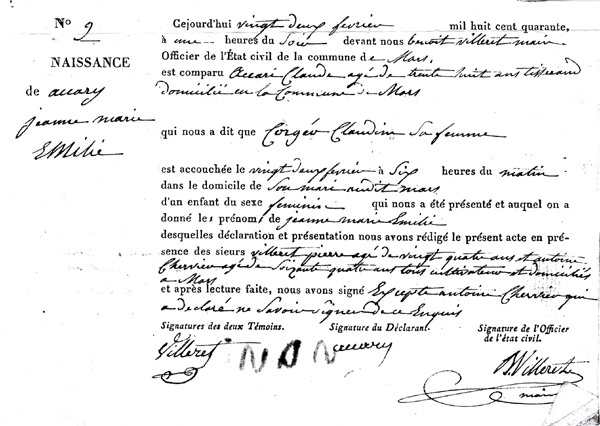 N° 9
NAISSANCE
de accary
jeanne marie
Emilie
Cejourd'hui vingt deux fevrier mil huit cent quarante,
à une heures du Soir devant nous benoit Villeret maire
Officier de l'État civil de la commune de Mars,
est comparu Accari Claude agé de trente huit ans tisserand
domicilié en la Commune de Mars
qui nous a dit que Claudine Sa femme
est accouchée le vingt deux fevrier à Six heures du matin
dans le domicile de Son mari audit mars
d'un enfant du sexe feminin qui nous a été présenté et auquel on a
donné les prénoms de jeanne marie Emilie
desquelles déclaration et présentation nous avons rédigé le présent acte en pré-
sence des sieurs villeret pierre agé de vingt quatre ans et antoine
Cherrier agé de Soixante quatre ans tous cultivateurs et domiciliés
a Mars
et après lecture faite, nous avons signé Excepté antoine Cherrier qui
a declaré ne Savoir signer de ce Enquis
Signatures des deux Témoins. Signature du Déclarant. Signature de l'Officier
de l'état civil.
Villeret NON accary B. Villeret
maire